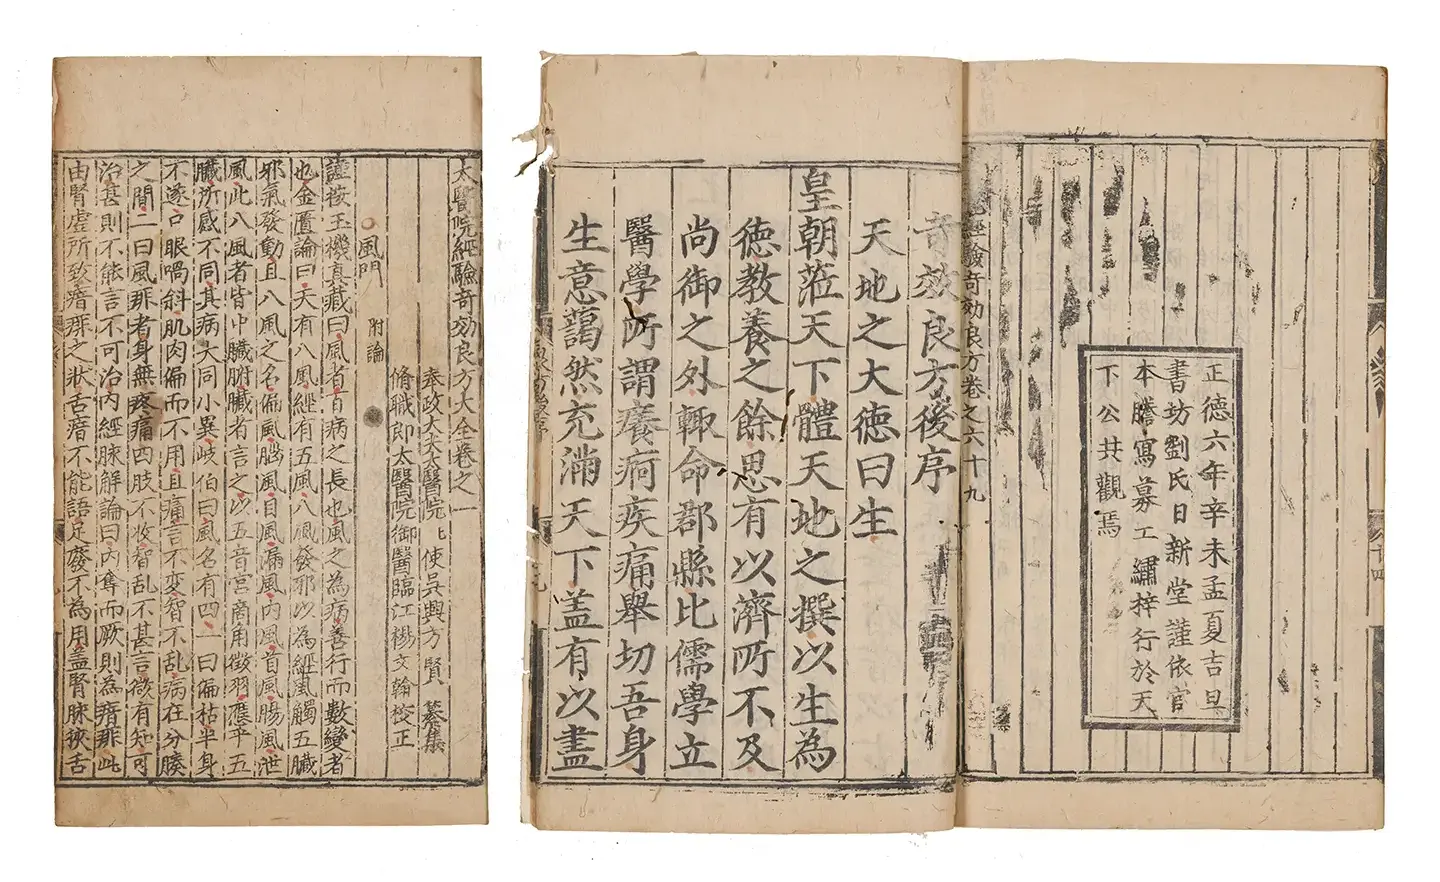 太醫院經驗奇効良方大全卷之一
奉政大夫太醫院〻使吳興方賢 纂集
脩職郎太醫院御醫臨江楊文翰校正
○風門 附論
謹按玉機真藏曰風者百病之長也風之為病善行而數變者
也金匱論曰天有八風經有五風八風發邪以為經風觸五臓
邪氣發動且八風之名偏風腦風目風漏風內風首風腸風泄
風此八風者皆中臓腑臓者言之以五音宮商角徵羽應乎五
臓所感不同其病大同小異岐伯曰風名有四一曰偏枯半身
不遂口眼喎斜肌肉偏而不用且痛言不変智不乱病在分腠
之間二曰風痱者身無疼痛四肢不收智乱不甚言微有知可
治甚則不能言不可治內經脉解論曰內奪而厥則為瘖痱此
由腎虛所致瘖痱之狀舌瘖不能語足廢不為用盖腎脉挾舌
正德六年辛未孟夏吉旦
書坊劉氏日新堂謹依官
本謄寫募工繡梓行於天
下公共觀焉
經驗奇効良方卷之六十九
奇效良方後序
天地之大德曰生
皇朝莅天下體天地之撰以生為
德教養之餘思有以濟所不及
尚御之外輙命郡縣比儒學立
醫學所謂癢痾疾痛舉切吾身
生意藹然充滿天下盖有以盡